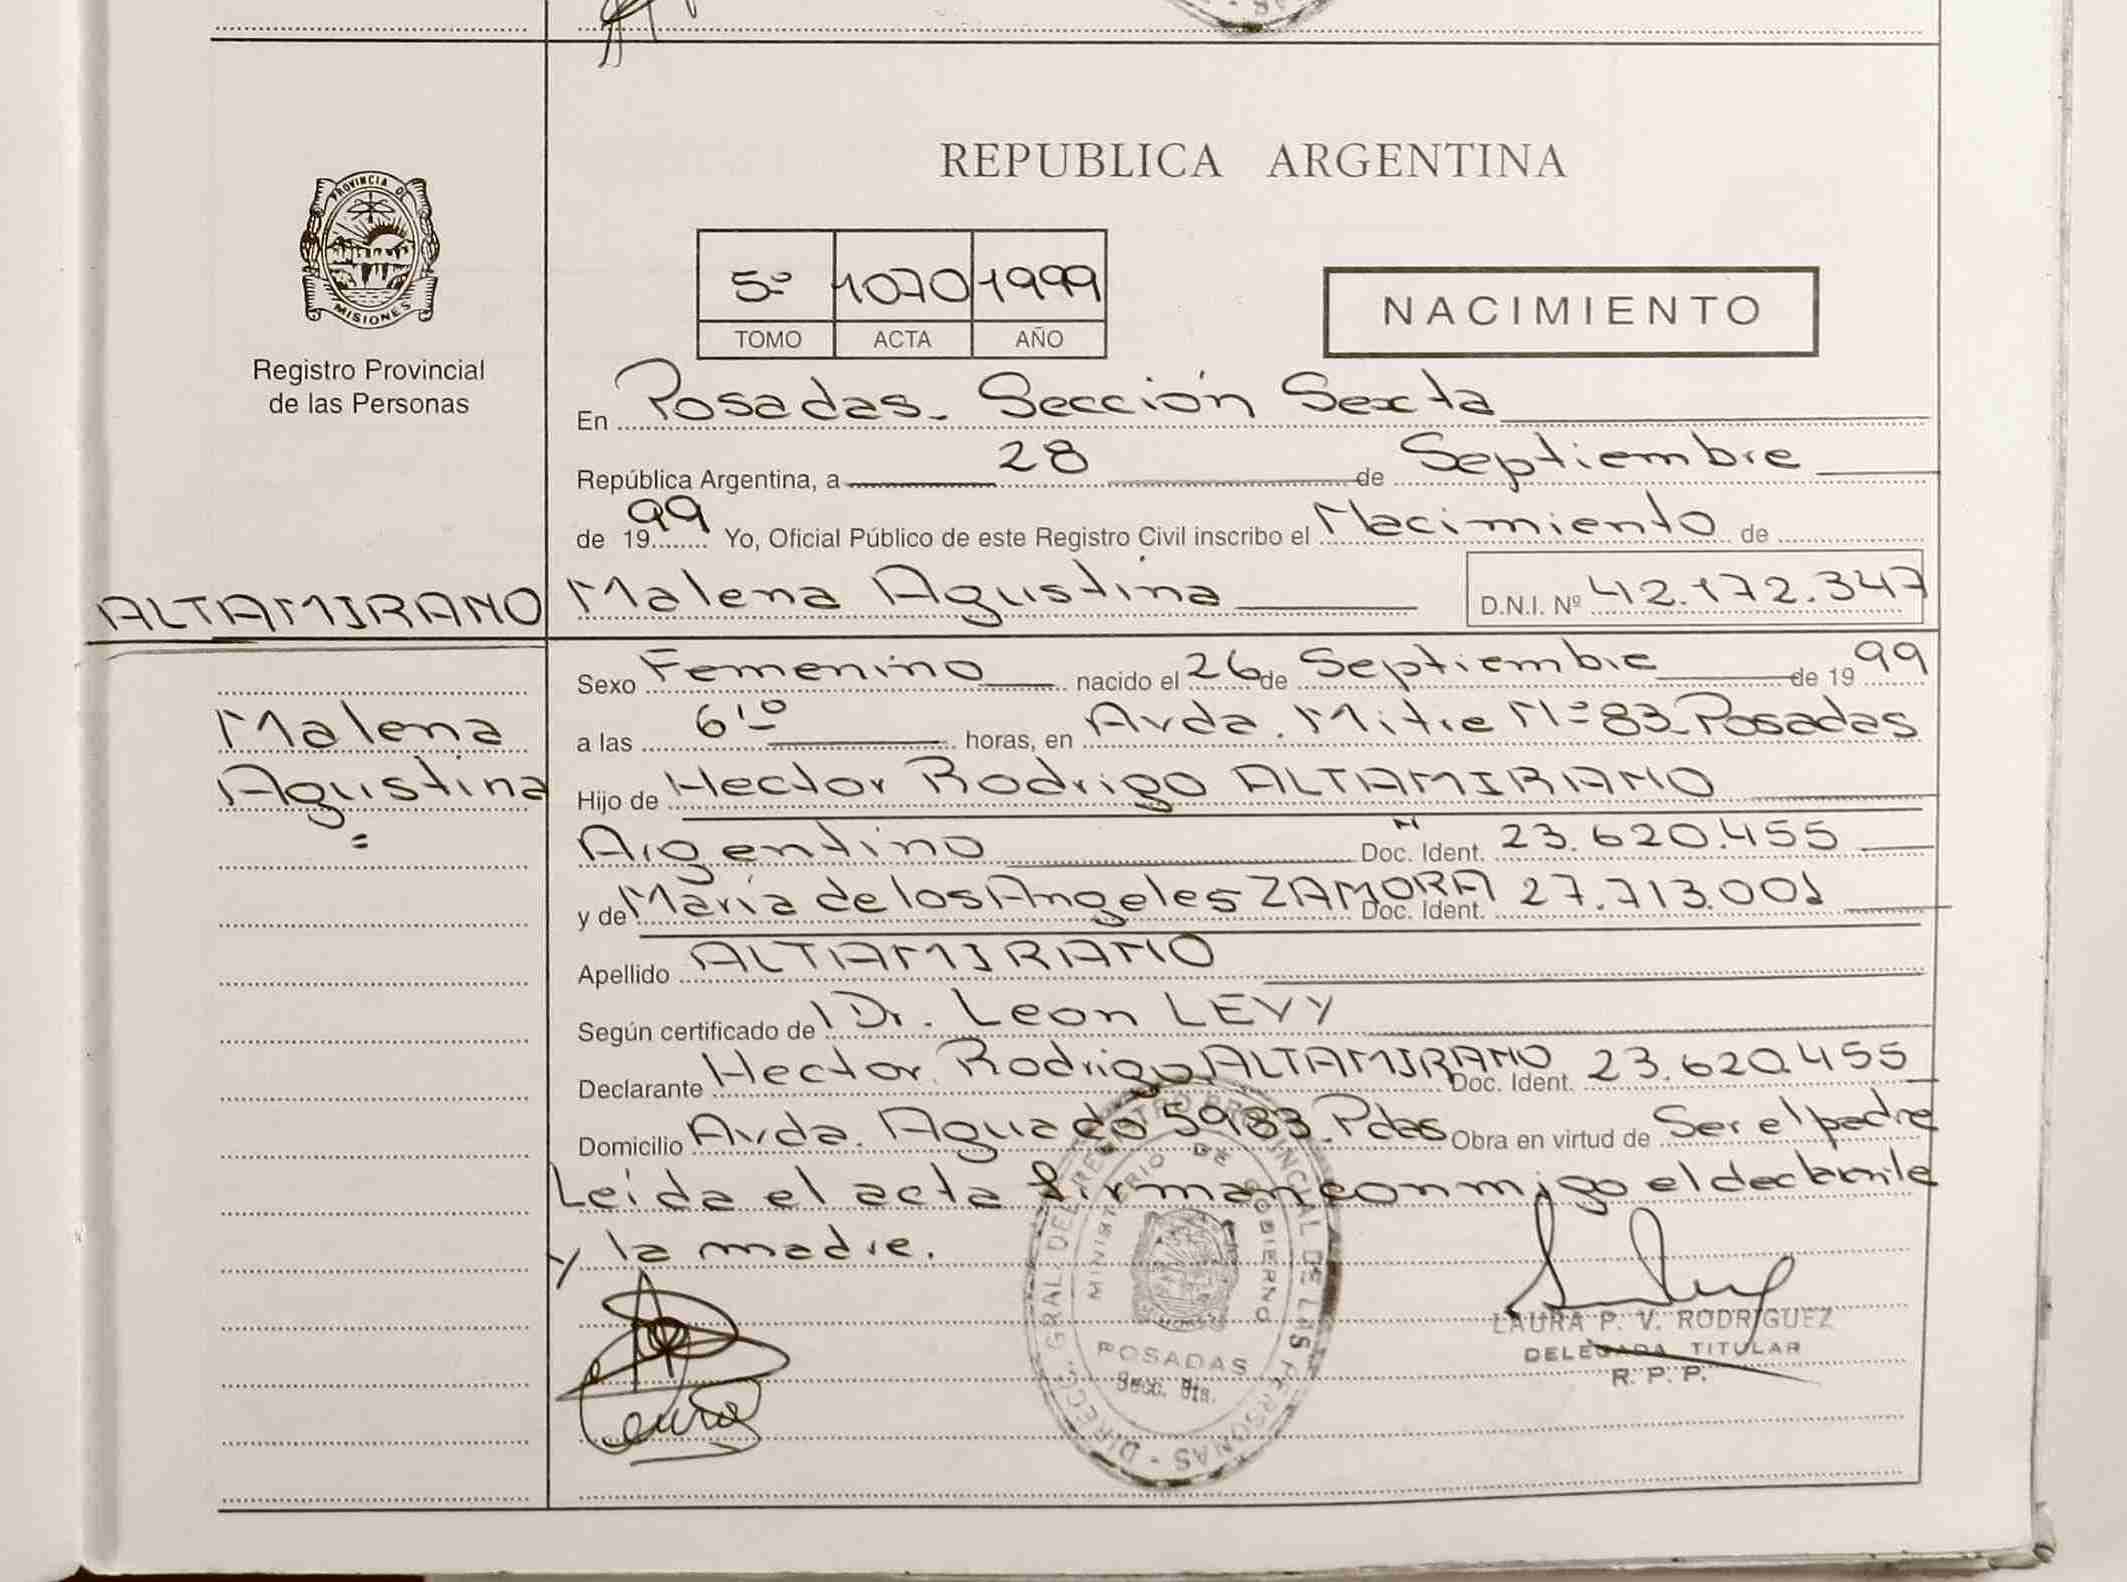 REPUBLICA ARGENTINA
PROVINCIA DE
MISIONES
Registro Provincial
de las Personas
5º 1070 1999
TOMO ACTA AÑO
NACIMIENTO
En Posadas - Sección Sexta
República Argentina, a 28 de Septiembre
de 1999 Yo, Oficial Público de este Registro Civil inscribo el Nacimiento de
ALTAMIRANO Malena Agustina D.N.I. Nº 42.172.347
Sexo Femenino nacido el 26 de Septiembre de 1999
Malena
Agustina
a las 6'º horas, en Avda. Mitre Nº 83 - Posadas
Hijo de Hector Rodrigo ALTAMIRANO
Argentino Doc. Ident. 23.620.455
y de María de los Angeles ZAMORA Doc. Ident. 27.713.001
Apellido ALTAMIRANO
Según certificado de Dr. Leon LEVY
Declarante Hector Rodrigo ALTAMIRANO Doc. Ident. 23.620.455
Domicilio Avda. Aguado 5983. Pdas Obra en virtud de Ser el padre
Leída el acta firman conmigo el declarante
y la madre.
DIRECC. GRAL. DEL REGISTRO PROVINCIAL DE LAS PERSONAS
MINISTERIO DE GOBIERNO
POSADAS
Secc. 6ta.
LAURA P. V. RODRIGUEZ
DELEGADA TITULAR
R. P. P.